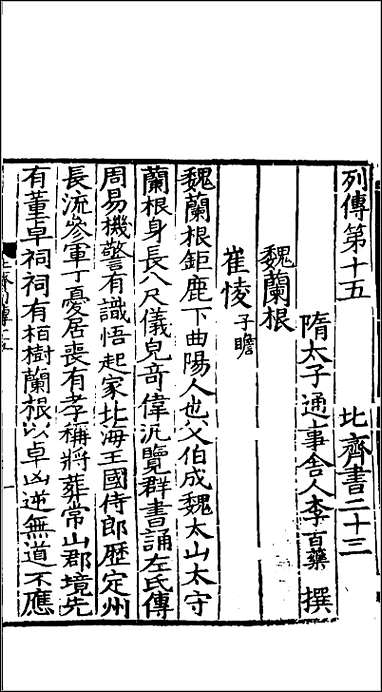 列傳第十五　北齊書二十三
隋太子通事舍人李百藥　撰
魏蘭根
崔㥄子瞻
魏蘭根鉅鹿下曲陽人也父伯成魏太山太守
蘭根身長八尺儀皃奇偉汎覽群書誦左氏傳
周易機警有識悟起家北海王國侍郎歷定州
長流參軍丁憂居喪有孝稱將葬常山郡境先
有董卓祠祠有栢樹蘭根以卓凶逆無道不應